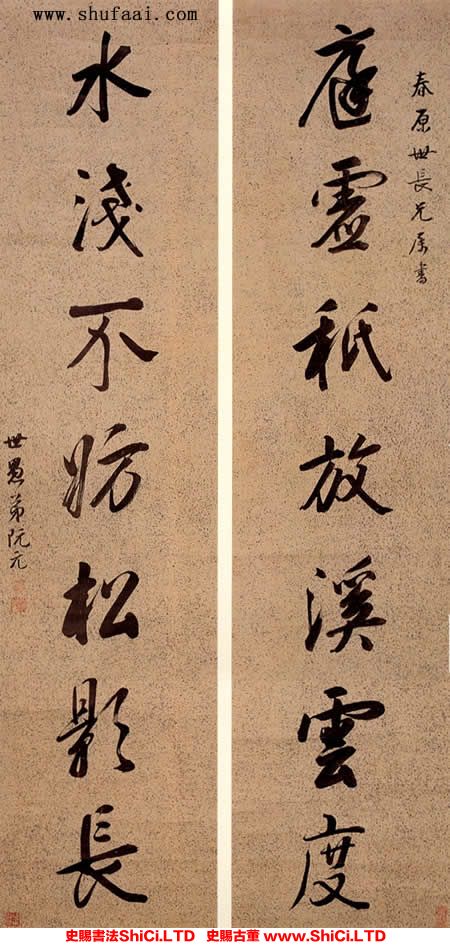 www.shufaai.com
春原世長兄属書
庭虛秖放溪雲度
水淺不妨松影長
世愚弟阮元
史賜書法ShiCi.LTD 史賜古董 www.ShiCi.LTD